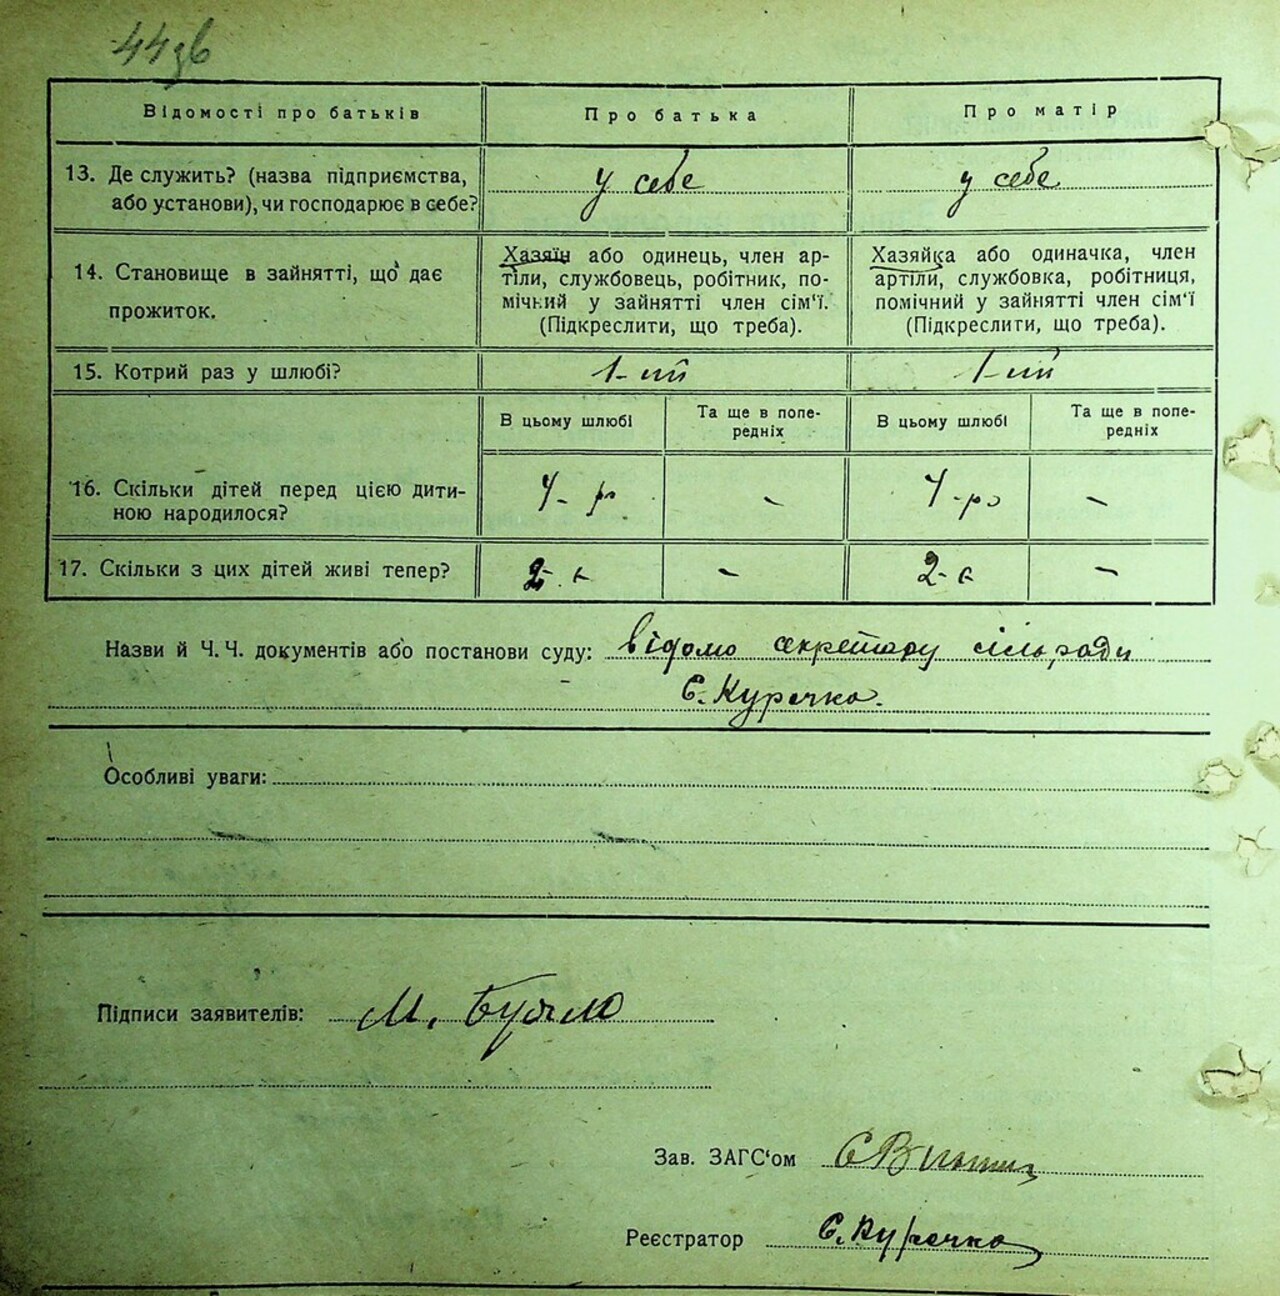 44зв
Відомості про батьків
Про батька
Про матір
13. Де служить? (назва підприємства,
або установи), чи господарює в себе?
у себе
у себе
14. Становище в зайнятті, що дає
прожиток.
Хазяїн або одинець, член ар-
тіли, службовець, робітник, по-
мічний у зайнятті член сім'ї.
(Підкреслити, що треба).
Хазяйка або одиначка, член
артіли, службовка, робітниця,
помічний у зайнятті член сім'ї
(Підкреслити, що треба).
15. Котрий раз у шлюбі?
1-ий
1-ий
В цьому шлюбі
Та ще в попе-
редніх
В цьому шлюбі
Та ще в попе-
редніх
16. Скільки дітей перед цією дити-
ною народилося?
4-ро
-
4-ро
-
17. Скільки з цих дітей живі тепер?
2-є
-
2-є
-
Назви й Ч. Ч. документів або постанови суду: відомо секретару сільради
Є. Куречко.
Особливі уваги:
Підписи заявителів: М.
Зав. ЗАГС'ом
Реєстратор Є. Куречко